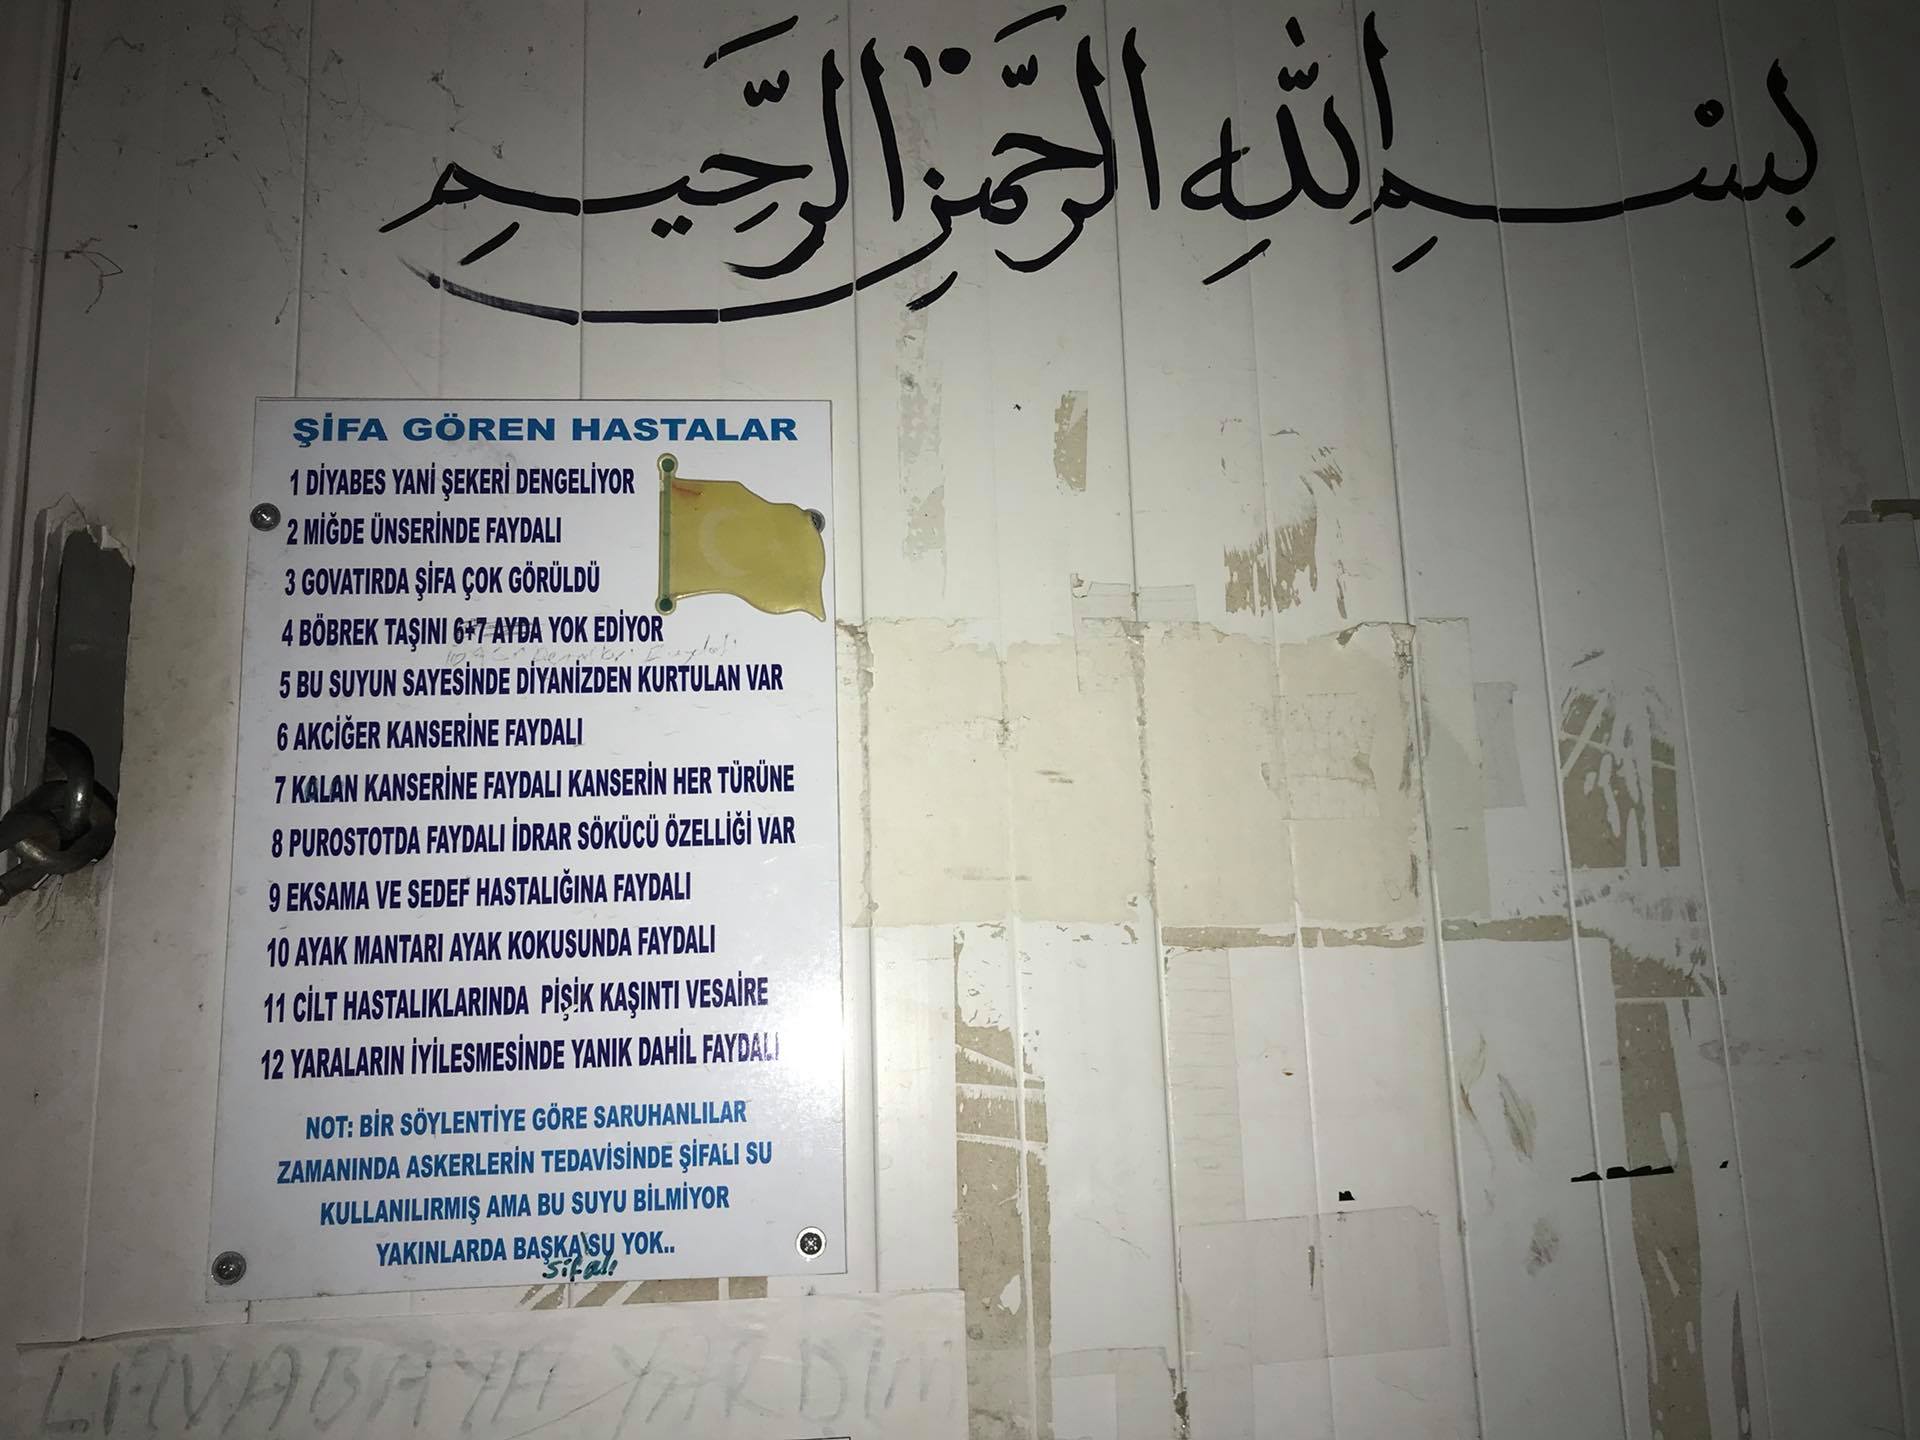 بِسْمِ اللّٰهِ الرَّحْمٰنِ الرَّحِيمِ
ŞİFA GÖREN HASTALAR
1 DİYABES YANİ ŞEKERİ DENGELİYOR
2 MİĞDE ÜNSERİNDE FAYDALI
3 GOVATIRDA ŞİFA ÇOK GÖRÜLDÜ
4 BÖBREK TAŞINI 6+7 AYDA YOK EDİYOR
5 BU SUYUN SAYESİNDE DİYANİZDEN KURTULAN VAR
6 AKCİĞER KANSERİNE FAYDALI
7 KALAN KANSERİNE FAYDALI KANSERİN HER TÜRÜNE
8 PUROSTOTDA FAYDALI İDRAR SÖKÜCÜ ÖZELLİĞİ VAR
9 EKSAMA VE SEDEF HASTALIĞINA FAYDALI
10 AYAK MANTARI AYAK KOKUSUNDA FAYDALI
11 CİLT HASTALIKLARINDA PİŞİK KAŞINTI VESAİRE
12 YARALARIN İYİLESMESİNDE YANIK DAHİL FAYDALI
NOT: BİR SÖYLENTİYE GÖRE SARUHANLILAR
ZAMANINDA ASKERLERİN TEDAVİSİNDE ŞİFALI SU
KULLANILIRMIŞ AMA BU SUYU BİLMİYOR
YAKINLARDA BAŞKA SU YOK..
şifalı
LAVABAYA YARDIM